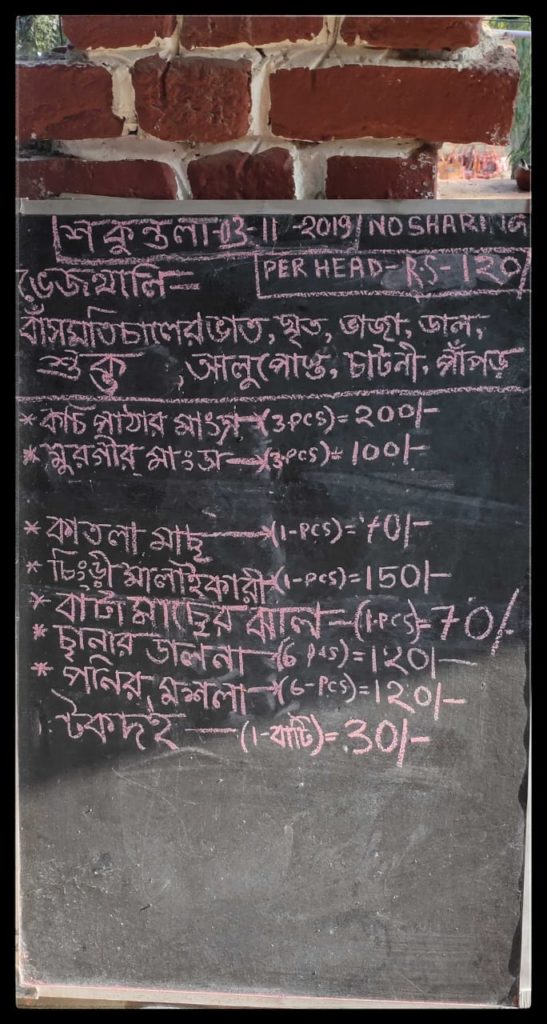 শকুন্তলা-03-11-2019 NO SHARING
ভেজথালি= PER HEAD-RS-120
বাঁসমতি চালের ভাত, ঘৃত, ভাজা, ডাল,
শুক্ত, আলুপোস্ত, চাটনী, পাঁপড়
* কচি পাঠার মাংস-(3-PCS)=200/-
* মুরগীর মাংস-(3-PCS)=100/-
* কাতলা মাছ-(1-PCS)=70/-
* চিংড়ী মালাইকারী-(1-PCS)=150/-
* বাটা মাছের ঝাল-(1-PCS)=70/-
* ছানার ডালনা-(6 PCS)=120/-
* পনির মশলা-(6-PCS)=120/-
টকদই-(1-বাটি)=30/-